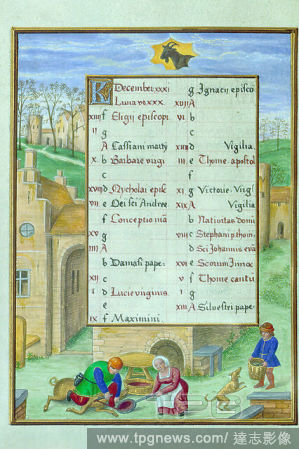 KL December xxxi
Luna vero xxx.
xiii f Eligii episcopi
ii g
A Cassiani marty
x b Barbare virgi
c
xviii d Nycholai epis
vii e Dei sci Andree
f Conceptio ma
xv g
iiii A
b Damasi pape
xii c
i d Lucie virginis
e
ix f Maximini
g Ignacij episco
xvii A
vi b
c
xiiii d Vigilia
iii e Thome apostol
f
xi g Victorie Virg
xix A Vigilia
b Nativitas domi
viii c Stephani pthom
d Sci Johannis eva
xvi e Scorum Innoc
v f Thome cantu
g
xiii A Silvestri pape
www.tpgnews.com/ 達志影像